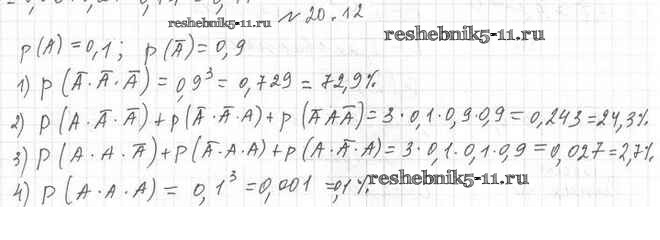 reshebnik5-11.ru
№ 20.12
reshebnik5-11.ru
p(A)=0,1; p(Ā)=0,9
1) p(Ā·Ā·Ā)=0,9³=0,729=72,9%
2) p(A·Ā·Ā)+p(Ā·Ā·A)+p(ĀAĀ)=3·0,1·0,9·0,9=0,243=24,3%
3) p(A·A·Ā)+p(Ā·A·A)+p(A·Ā·A)=3·0,1·0,1·0,9=0,027=2,7%
4) p(A·A·A)=0,1³=0,001=0,1%
reshebnik5-11.ru